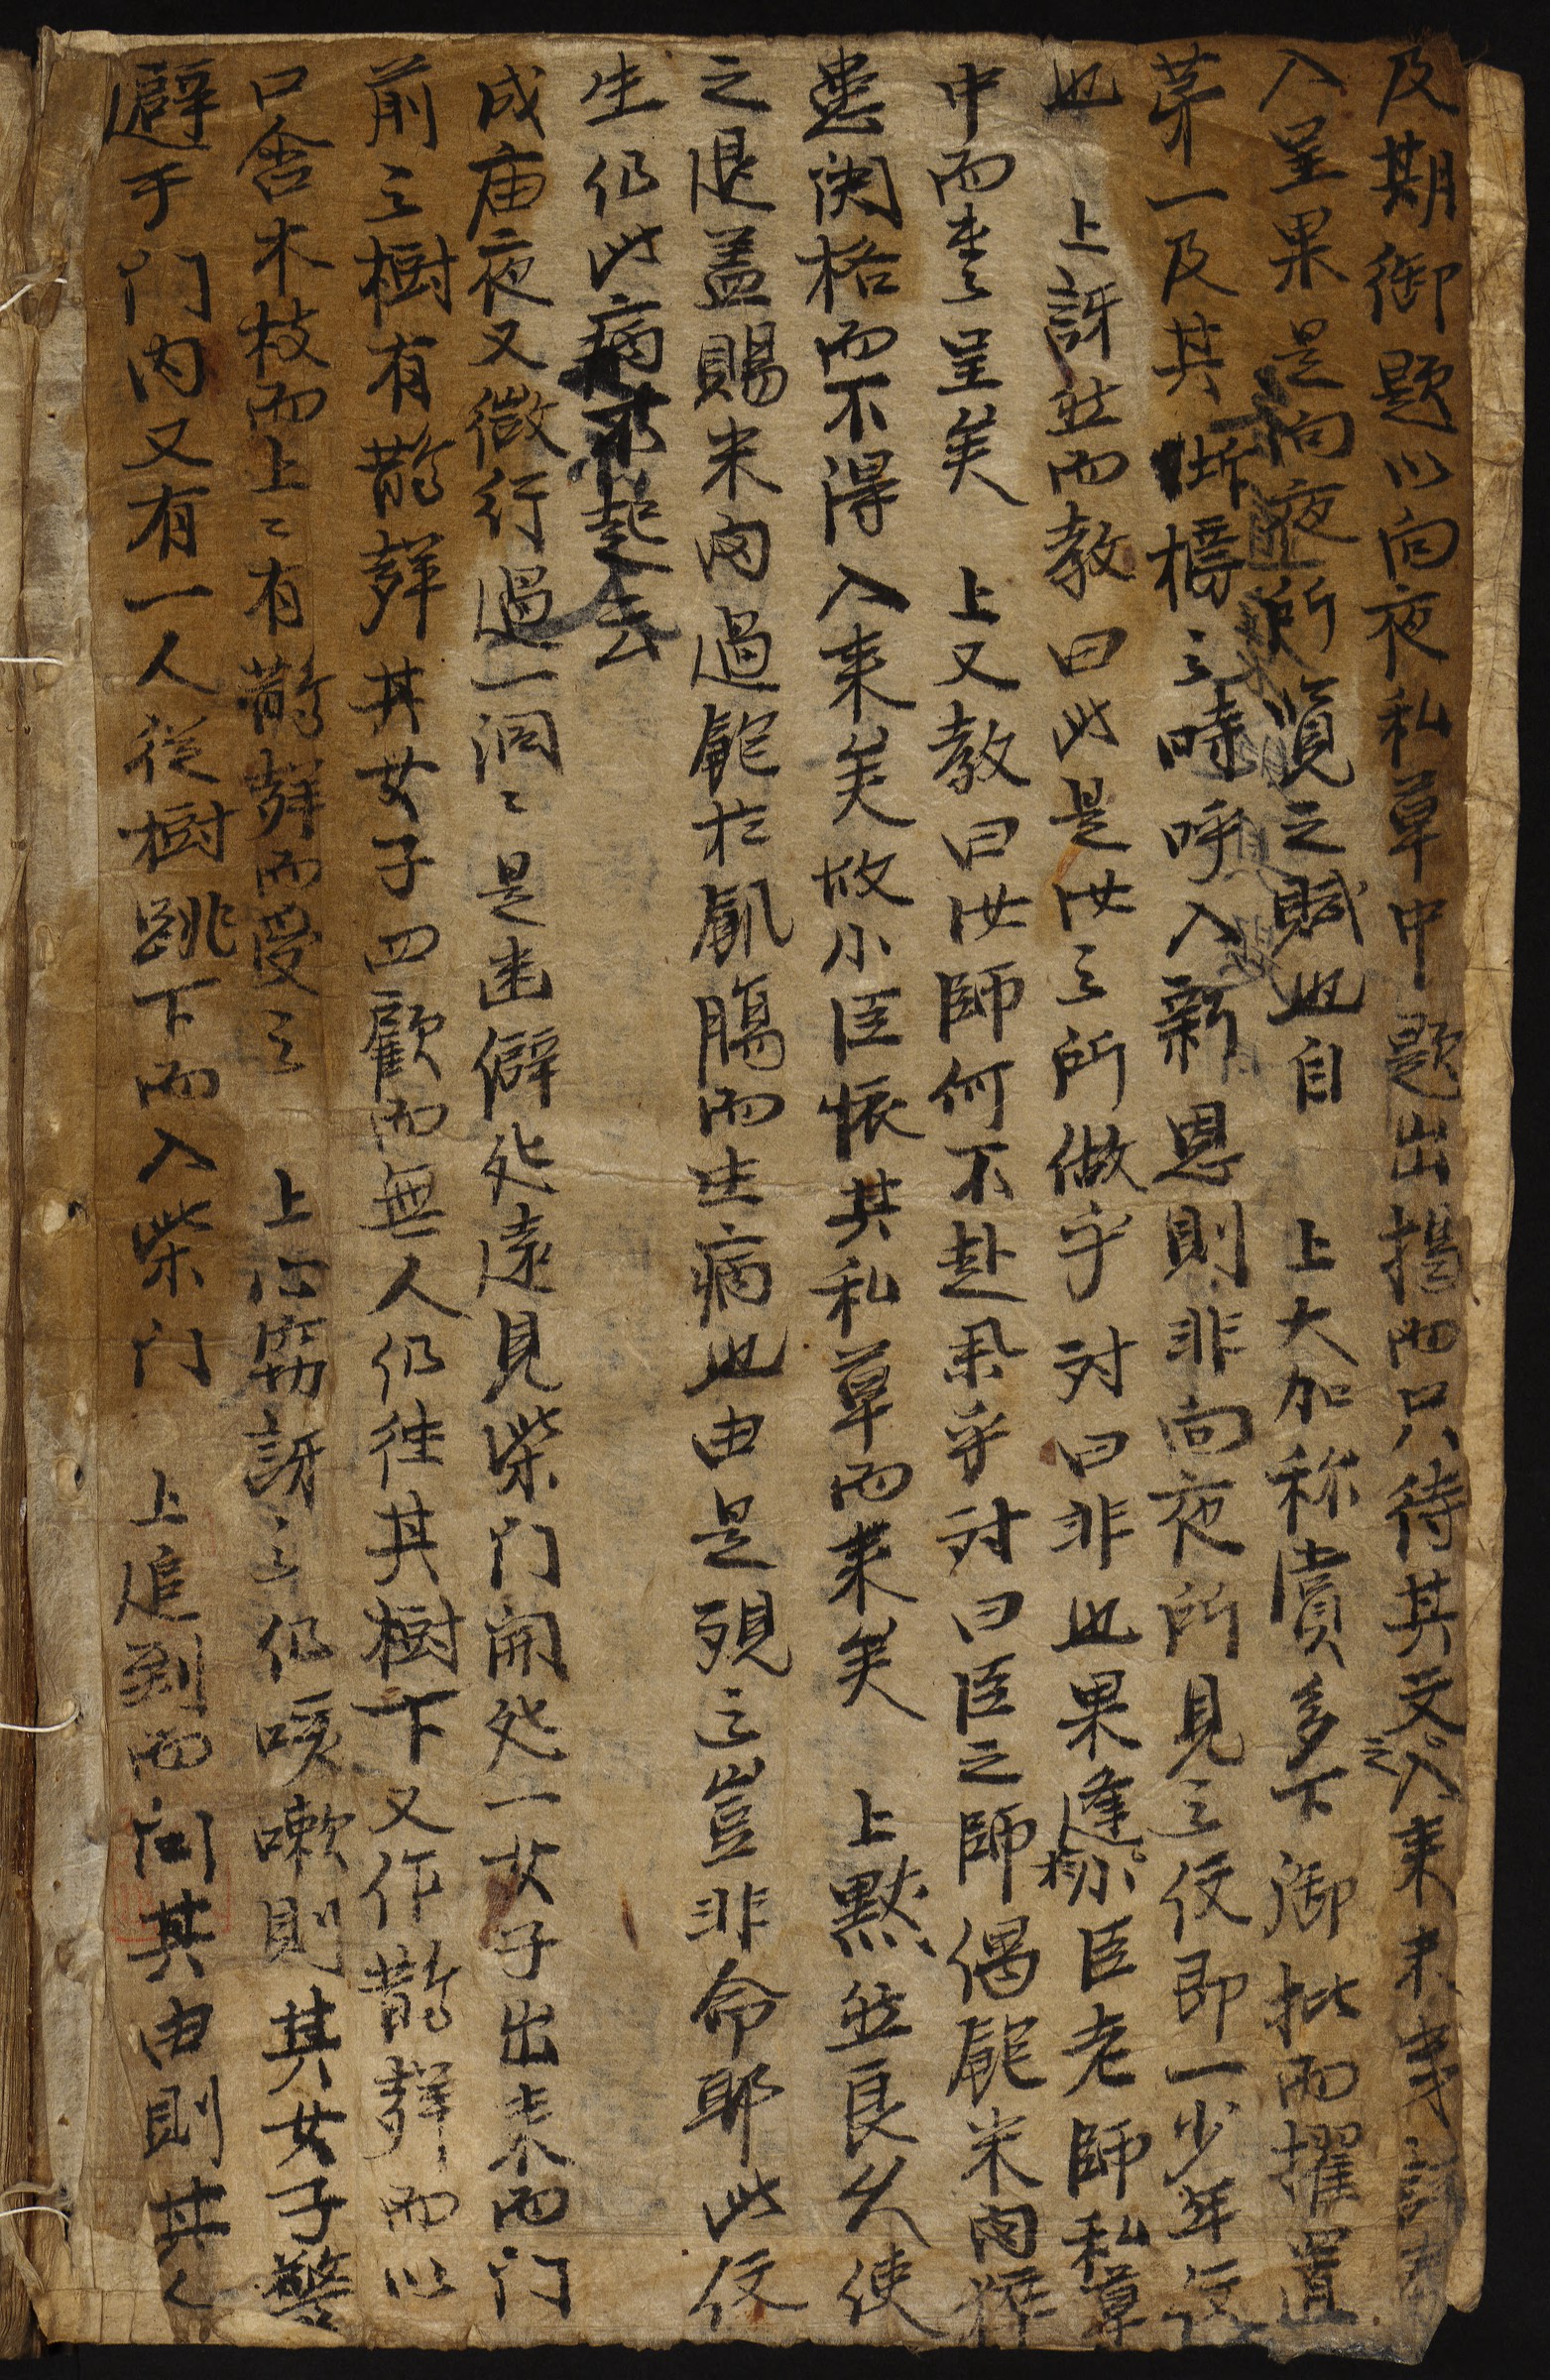 及期御題以向夜私草中題出揭而只待其文之入來未幾
入呈果是向夜所覽之賦也自 上大加称賞多下御批而擢置
苐一及其坼榜之時呼入新恩則非向夜所見之仅即一少年仅
也 上訝然而教曰此是汝之所做乎対曰非也果逢於臣老師私草
中而書呈矣 上又教曰汝師何不赴擧乎対曰臣之師偶飽米肉
患関格而不得入来矣故小臣懷其私草而来矣 上黙然良久使
之退盖賜米肉過飽於飢膓而生病也由是観之豈非命耶此仅
生仍此病不起云
成庙夜又微行過一洞〻是幽僻処遠見柴门開処一女子出来而门
前之樹有鵲聲其女子四顧而無人仍往其樹下又作鵲聲而以
口含木枝而上〻有鵲聲而受之 上心竊訝之仍咳嗽則其女子驚
避于门内又有一人從樹跳下而入柴门 上追到而问其由則其人